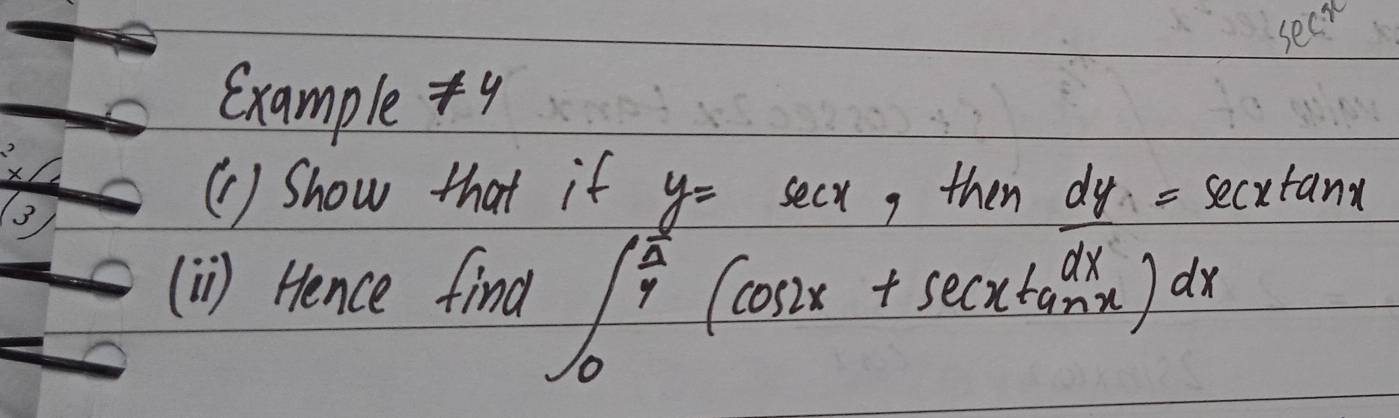 secx
Example #4
(i) Show that if y= secx, then dy/dx = secxtanx
(ii) Hence find ∫₀^(π/4) (cos2x + secxtanx) dx